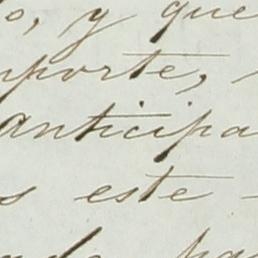 o, y que
mporte,
anticipa
s este